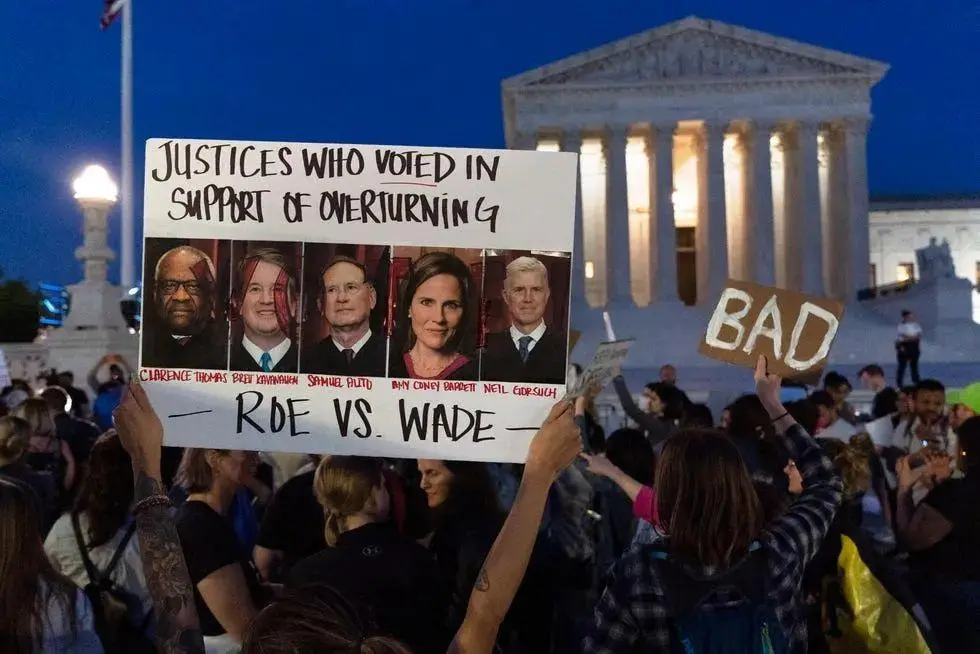 JUSTICES WHO VOTED IN
SUPPORT OF OVERTURNING
CLARENCE THOMAS BRETT KAVANAUGH SAMUEL ALITO AMY CONEY BARRETT NEIL GORSUCH
— ROE VS. WADE —
BAD